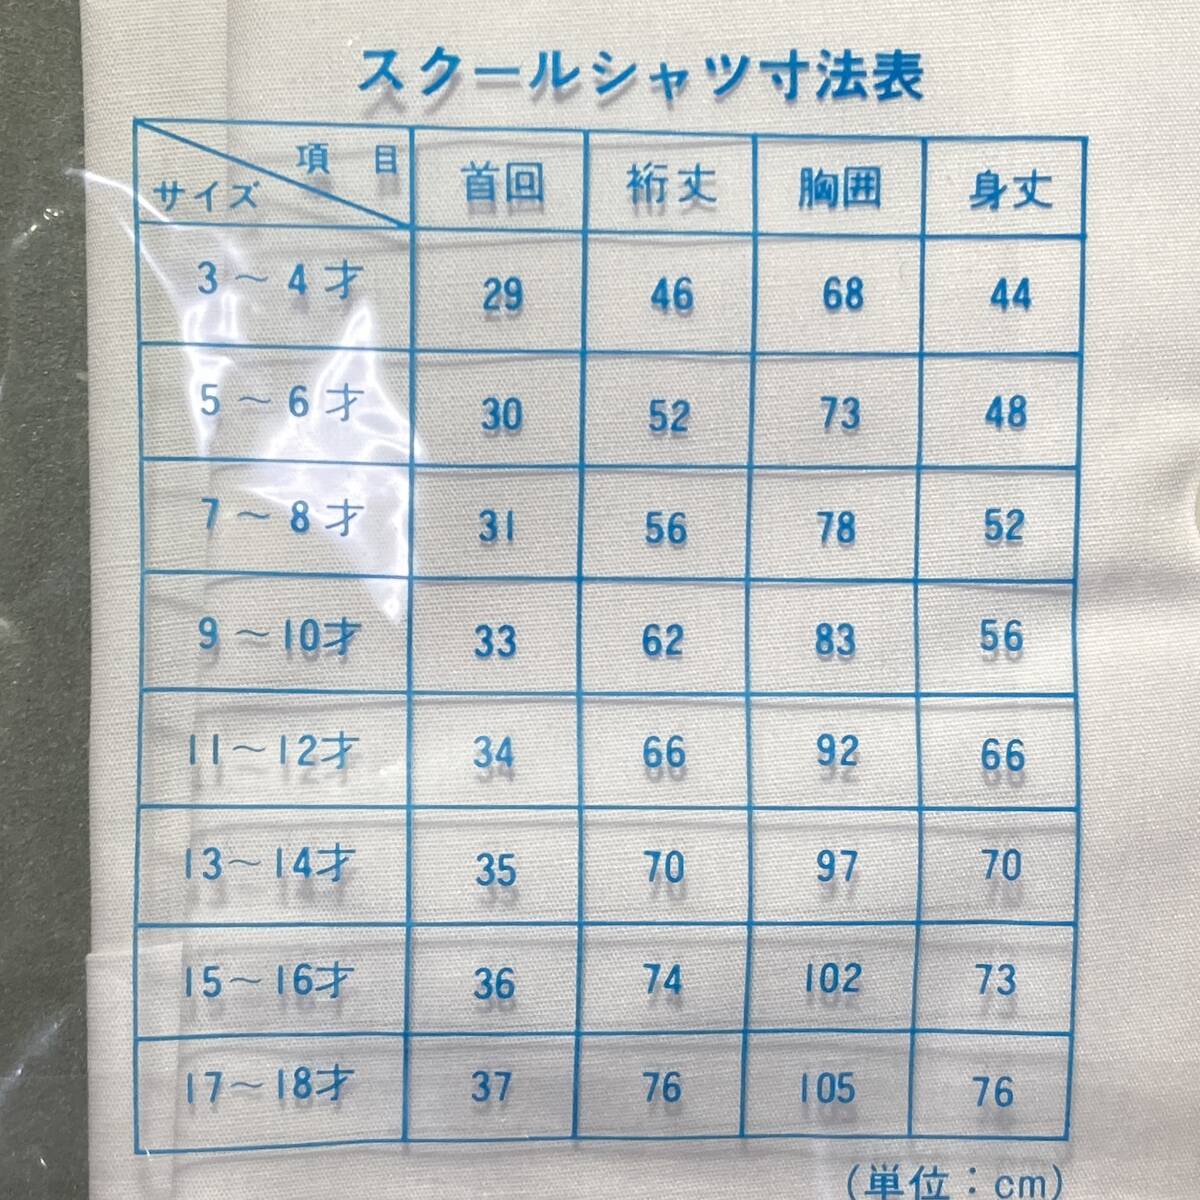 スクールシャツ寸法表
項目
サイズ 首回 裄丈 胸囲 身丈
3〜4才 29 46 68 44
5〜6才 30 52 73 48
7〜8才 31 56 78 52
9〜10才 33 62 83 56
11〜12才 34 66 92 66
13〜14才 35 70 97 70
15〜16才 36 74 102 73
17〜18才 37 76 105 76
(単位：cm)